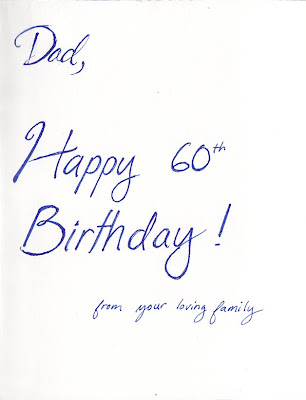 Dad,
Happy 60th
Birthday!
from your loving family